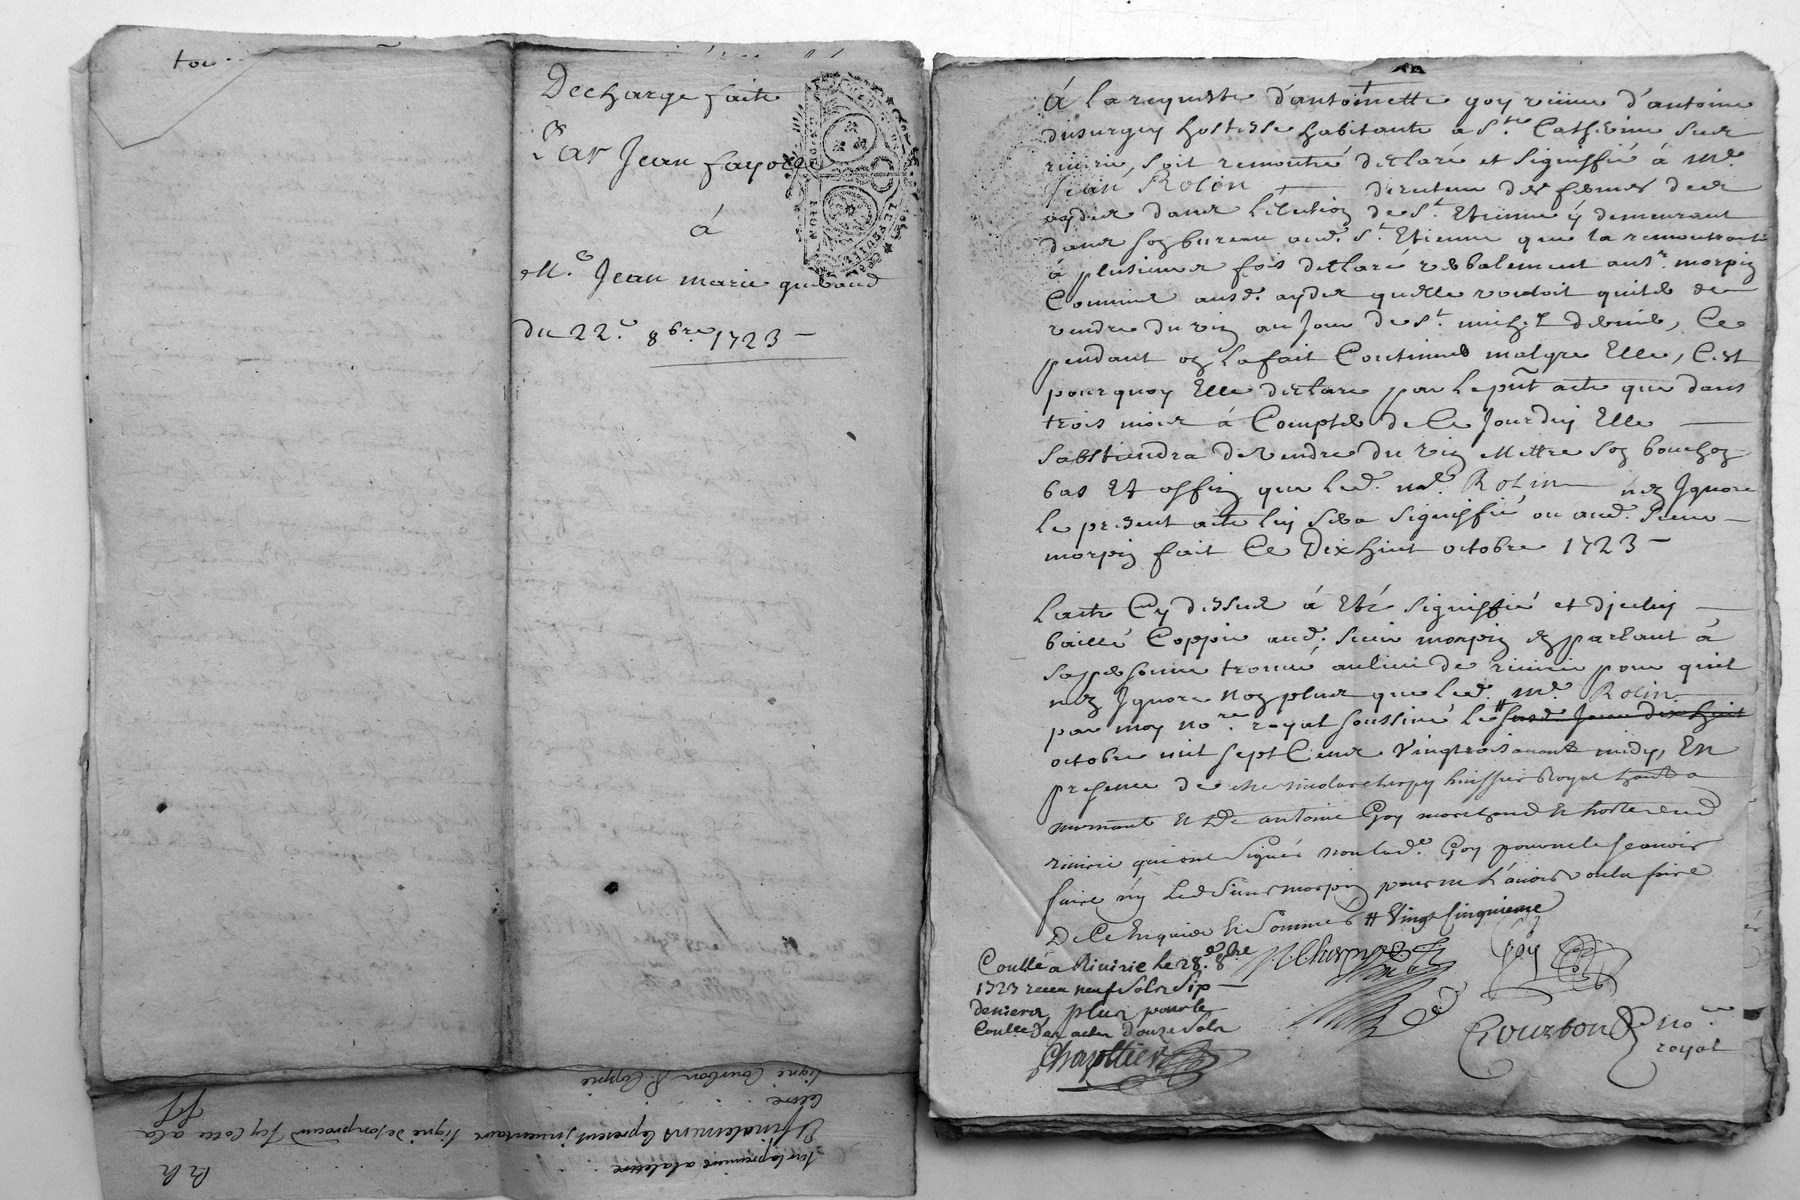 Decharge faite
Par Jean fayolle
á
Me. Jean marie guibaud
du 22e. 8bre. 1723
Á la requeste d'antoinette goy veuve d'antoine
dusurgey hostesse habitante a Ste. Catherine sur
riverie, soit remontré declaré et signiffié á mr.
Jean Rolin directeur des fermes des
aydes dans l'élection de St. Etienne y demeurant
dans son bureau aud. St. Etienne que la remontrante
á plusieurs fois declaré verbalement au sr. morpin
Commis ausd. aydes quelle vouloit quiter de
vendre du vin au Jour de St. michel dernier, Ce
pendant on la fait Continuer malgre Elle, C'est
pourquoy Elle declare par le pnt acte que dans
trois mois á Compter de Ce Jourduy Elle
s'abstiendra de vendre du vin Mettre son bouchon
bas Et affin que led. mr. Rolin n'en Ignore
le present acte luy sera signiffié ou aud. sieur
morpin fait Ce Dix huit octobre 1723
L'acte Cy dessus á Eté signiffié et d'jceluy
baillé Coppie aud. sieur morpin en parlant á
sa personne trouvé au lieu de riverie pour qu'il
n'en Ignore non plus que led. mr. Rolin
par moy nore. royal soussigné le # susd. Jour dix huit
octobre mil sept Cens vingtrois avant midy, En
presence de me nicolas cherpy huissier Royal
et De antoine Goy marchand et hoste dud
riverie qui ont signés non lad. Goy pour ne le scavoir
faire ny Led Sieur morpin pour ne l'avoir voulu faire
De Ce Enquis et Sommés # Vingt Cinquieme
Conllé a Riverie le 28e. 8bre
1723 receu neuf sols six
deniers plus pour le
Conlle des actes douze sols
Chapttier
NCherpy
Goy
Courbon No.re
royal
signé Courbon Coppie
Et finalement le present jnventaire signé de son procureur Icy Cotte a la
sur la premiere a la lettre